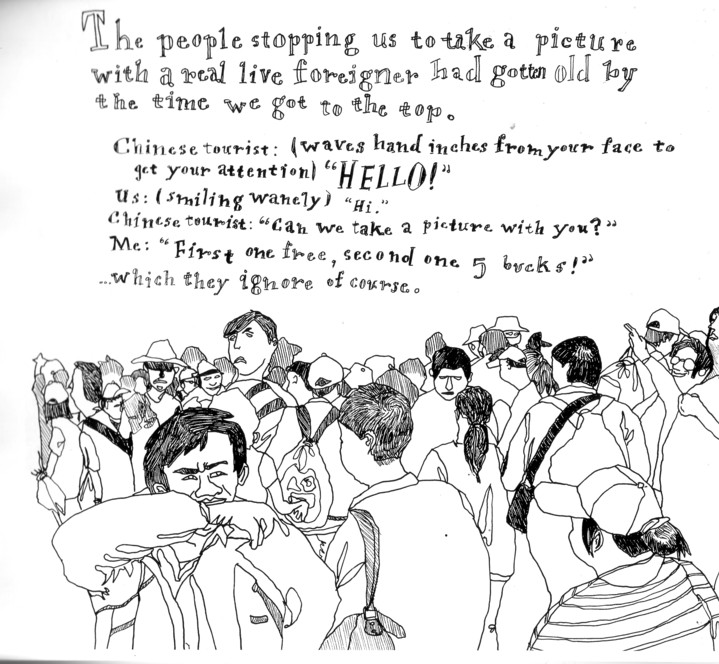 The people stopping us to take a picture
with a real live foreigner had gotten old by
the time we got to the top.
Chinese tourist: (waves hand inches from your face to
get your attention) "HELLO!"
Us: (smiling wanely) "Hi."
Chinese tourist: "Can we take a picture with you?"
Me: "First one free, second one 5 bucks!"
...which they ignore of course.